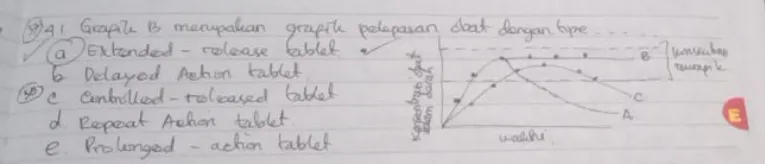 41 Grafik B merupakan grafik pelepasan obat dengan tipe ....
a Extended - release tablet
b Delayed Action tablet
c Controlled - released tablet
d Repeat Action tablet
e. Prolonged - action tablet
Konsentrasi obat dalam darah
waktu
B
C
A
E